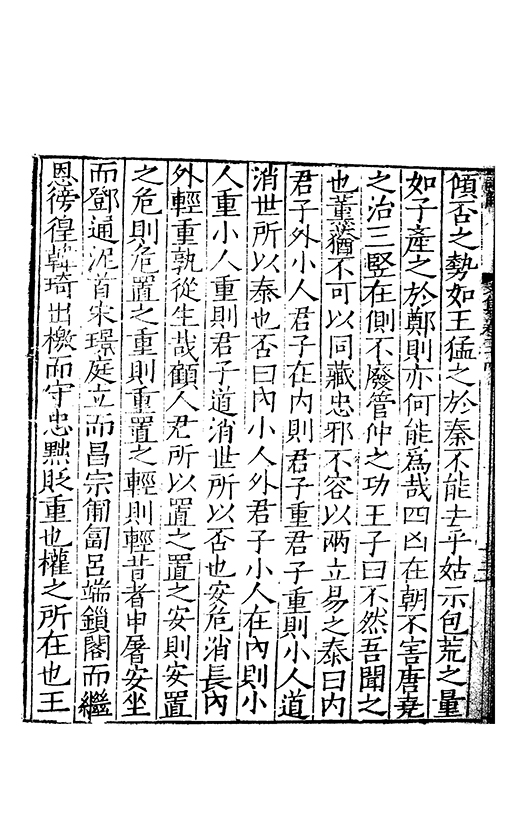 傾否之勢如王猛之於秦不能去乎姑示包荒之量
如子產之於鄭則亦何能為哉四凶在朝不害唐堯
之治三豎在側不廢管仲之功王子曰不然吾聞之
也薰蕕猶不可以同藏忠邪不容以兩立易之泰曰內
君子外小人君子在內則君子重君子重則小人道
消世所以泰也否曰內小人外君子小人在內則小
人重小人重則君子道消世所以否也安危消長內
外輕重孰從生哉顧人君所以置之置之安則安置
之危則危置之重則重置之輕則輕昔者申屠安坐
而鄧通泥首宋璟庭立而昌宗匍匐呂端鎖閣而繼
恩徬徨韓琦出檄而守忠黜貶重也權之所在也王